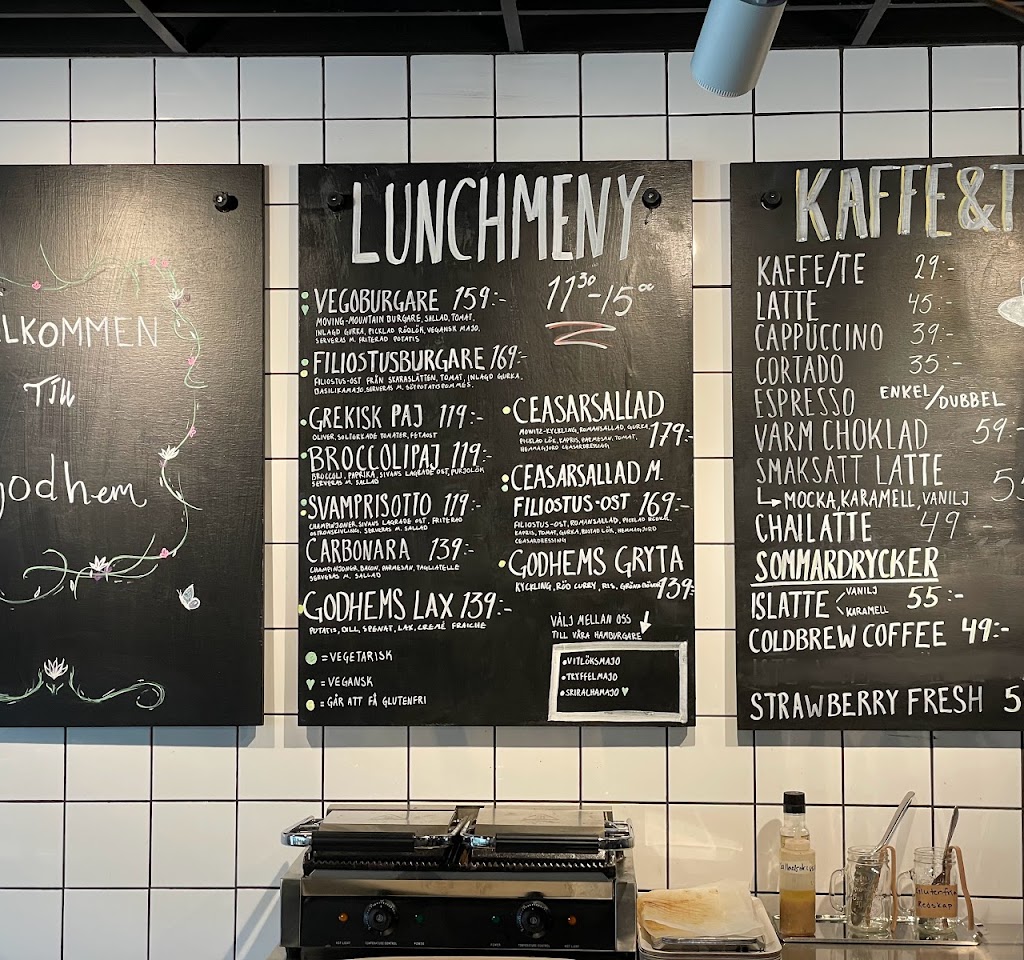 LKOMMEN
Till
odhem
LUNCHMENY
11³⁰-15⁰⁰
VEGOBURGARE 159:-
MOVING-MOUNTAIN BURGARE, SALLAD, TOMAT,
INLAGD GURKA, PICKLAD RÖDLÖK, VEGANSK MAJO,
SERVERAS M. FRITERAD POTATIS
FILIOSTUSBURGARE 169:-
FILIOSTUS-OST FRÅN SKARASLÄTTEN, TOMAT, INLAGD GURKA,
BASILIKAMAJO, SERVERAS M. SÖTPOTATISPOMMES.
GREKISK PAJ 119:-
OLIVER, SOLTORKADE TOMATER, FETAOST
BROCCOLIPAJ 119:-
BROCCOLI, PAPRIKA, SIVANS LAGRADE OST, PURJOLÖK
SERVERAS M. SALLAD
SVAMPRISOTTO 119:-
CHAMPINJONER, SIVANS LAGRADE OST, FRITERAD
OSTRONSKIVLING, SERVERAS M. SALLAD
CARBONARA 139:-
CHAMPINJONER, BACON, PARMESAN, TAGLIATELLE
SERVERAS M. SALLAD
GODHEMS LAX 139:-
POTATIS, DILL, SPENAT, LAX, CREMÉ FRAICHE
= VEGETARISK
♥ = VEGANSK
= GÅR ATT FÅ GLUTENFRI
CEASARSALLAD
KYCKLING, ROMANSALLAD, GURKA,
PICKLAD LÖK, KAPRIS, PARMESAN, TOMAT,
HEMMAGJORD CEASARDRESSING
179:-
CEASARSALLAD M.
FILIOSTUS-OST 169:-
FILIOSTUS-OST, ROMANSALLAD, PICKLAD RÖDLÖK,
KAPRIS, TOMAT, GURKA, ROSTAD LÖK, HEMMAGJORD
CEASARDRESSING
GODHEMS GRYTA
KYCKLING, RÖD CURRY, RIS, GRÖNSAKER
139:-
VÄLJ MELLAN OSS
TILL VÅRA HAMBURGARE
•VITLÖKSMAJO
•TRYFFELMAJO
•SRIRALHAMAJO ♥
KAFFE&T
KAFFE/TE 29:-
LATTE 45:-
CAPPUCCINO 39:-
CORTADO 35:-
ESPRESSO ENKEL/DUBBEL
VARM CHOKLAD 59:-
SMAKSATT LATTE 5
MOCKA, KARAMELL, VANILJ
CHAILATTE 49:-
SOMMARDRYCKER
ISLATTE VANILJ KARAMELL 55:-
COLDBREW COFFEE 49:-
STRAWBERRY FRESH 5
Redskap